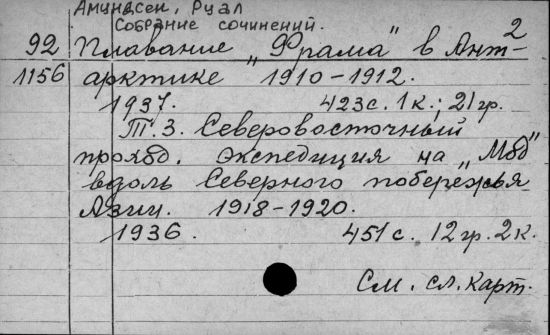 Амундсен, Руал
Собрание сочинений.
2
92 Плавание „Фрама" в Ант-
1156 арктике 1910-1912.
1937. 423с. 1к.; 21гр.
Т.3. Северовосточный
проход. Экспедиция на „Мод"
вдоль Северного побережья
Азии. 1918-1920.
1936. 451с. 12гр. 2к.
См. сл. карт.